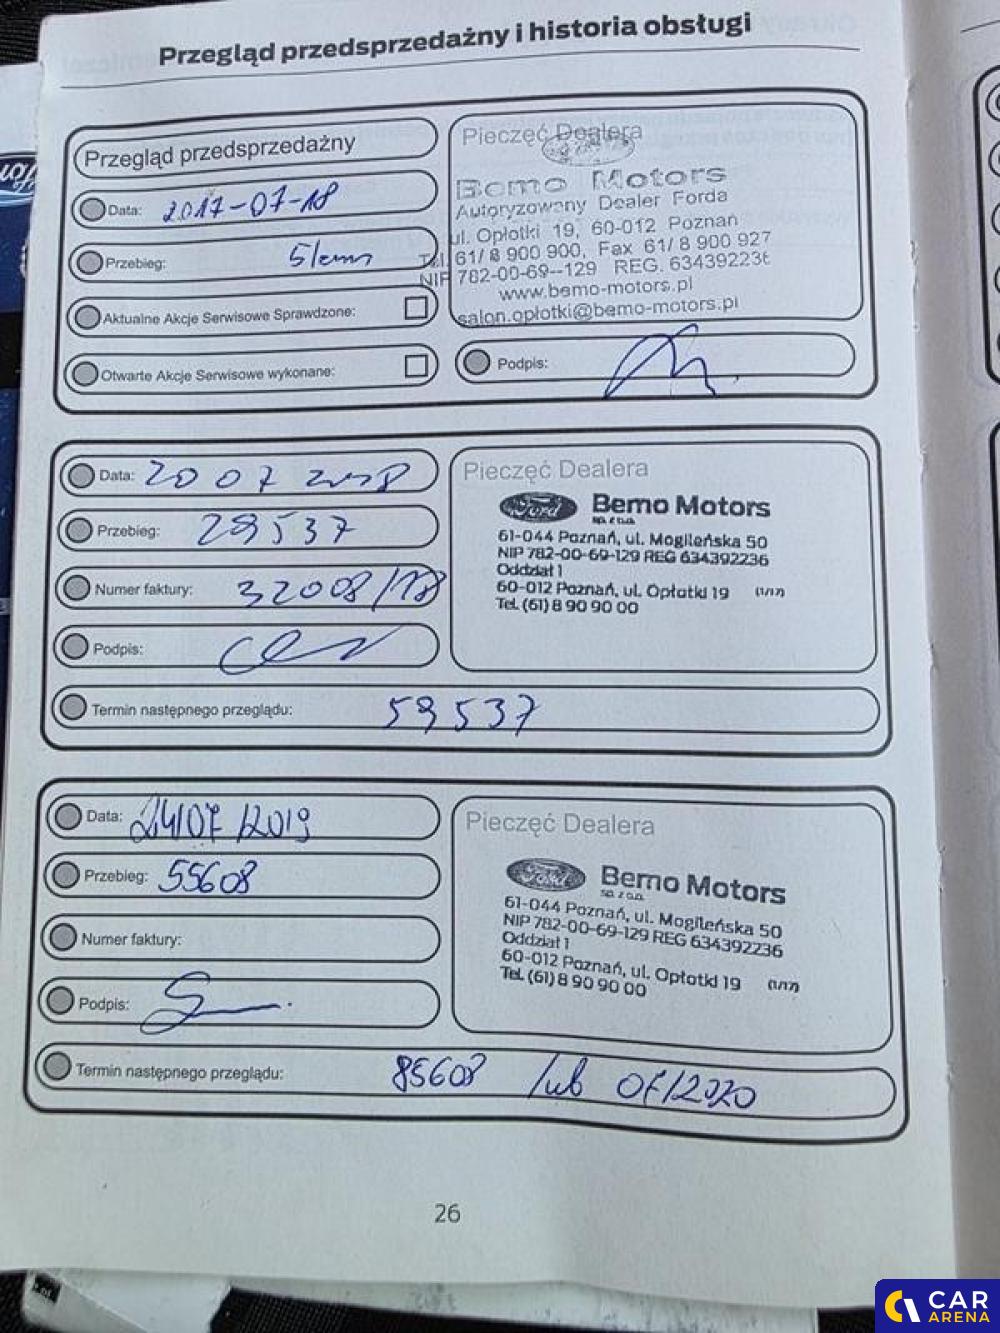 Przegląd przedsprzedażny i historia obsługi
Przegląd przedsprzedażny
Data: 2017-07-18
Przebieg: 5/cms
Aktualne Akcje Serwisowe Sprawdzone:
Otwarte Akcje Serwisowe wykonane:
Pieczęć Dealera
Bemo Motors
Autoryzowany Dealer Forda
ul. Opłotki 19, 60-012 Poznań
Tel. 61/ 8 900 900, Fax 61/ 8 900 927
NIP 782-00-69--129 REG. 634392236
www.bemo-motors.pl
salon.opłotki@bemo-motors.pl
Podpis:
Data: 20 07 2018
Przebieg: 29537
Numer faktury: 32008/18
Podpis:
Termin następnego przeglądu: 59537
Pieczęć Dealera
Ford Bemo Motors
sp. z o.o.
61-044 Poznań, ul. Mogileńska 50
NIP 782-00-69-129 REG 634392236
Oddział 1
60-012 Poznań, ul. Opłotki 19 (1/17)
Tel. (61) 8 90 90 00
Data: 24/07/2019
Przebieg: 55608
Numer faktury:
Podpis:
Termin następnego przeglądu: 85608 lub 07/2020
Pieczęć Dealera
Ford Bemo Motors
sp. z o.o.
61-044 Poznań, ul. Mogileńska 50
NIP 782-00-69-129 REG 634392236
Oddział 1
60-012 Poznań, ul. Opłotki 19 (1/17)
Tel. (61) 8 90 90 00
26
CAR
ARENA